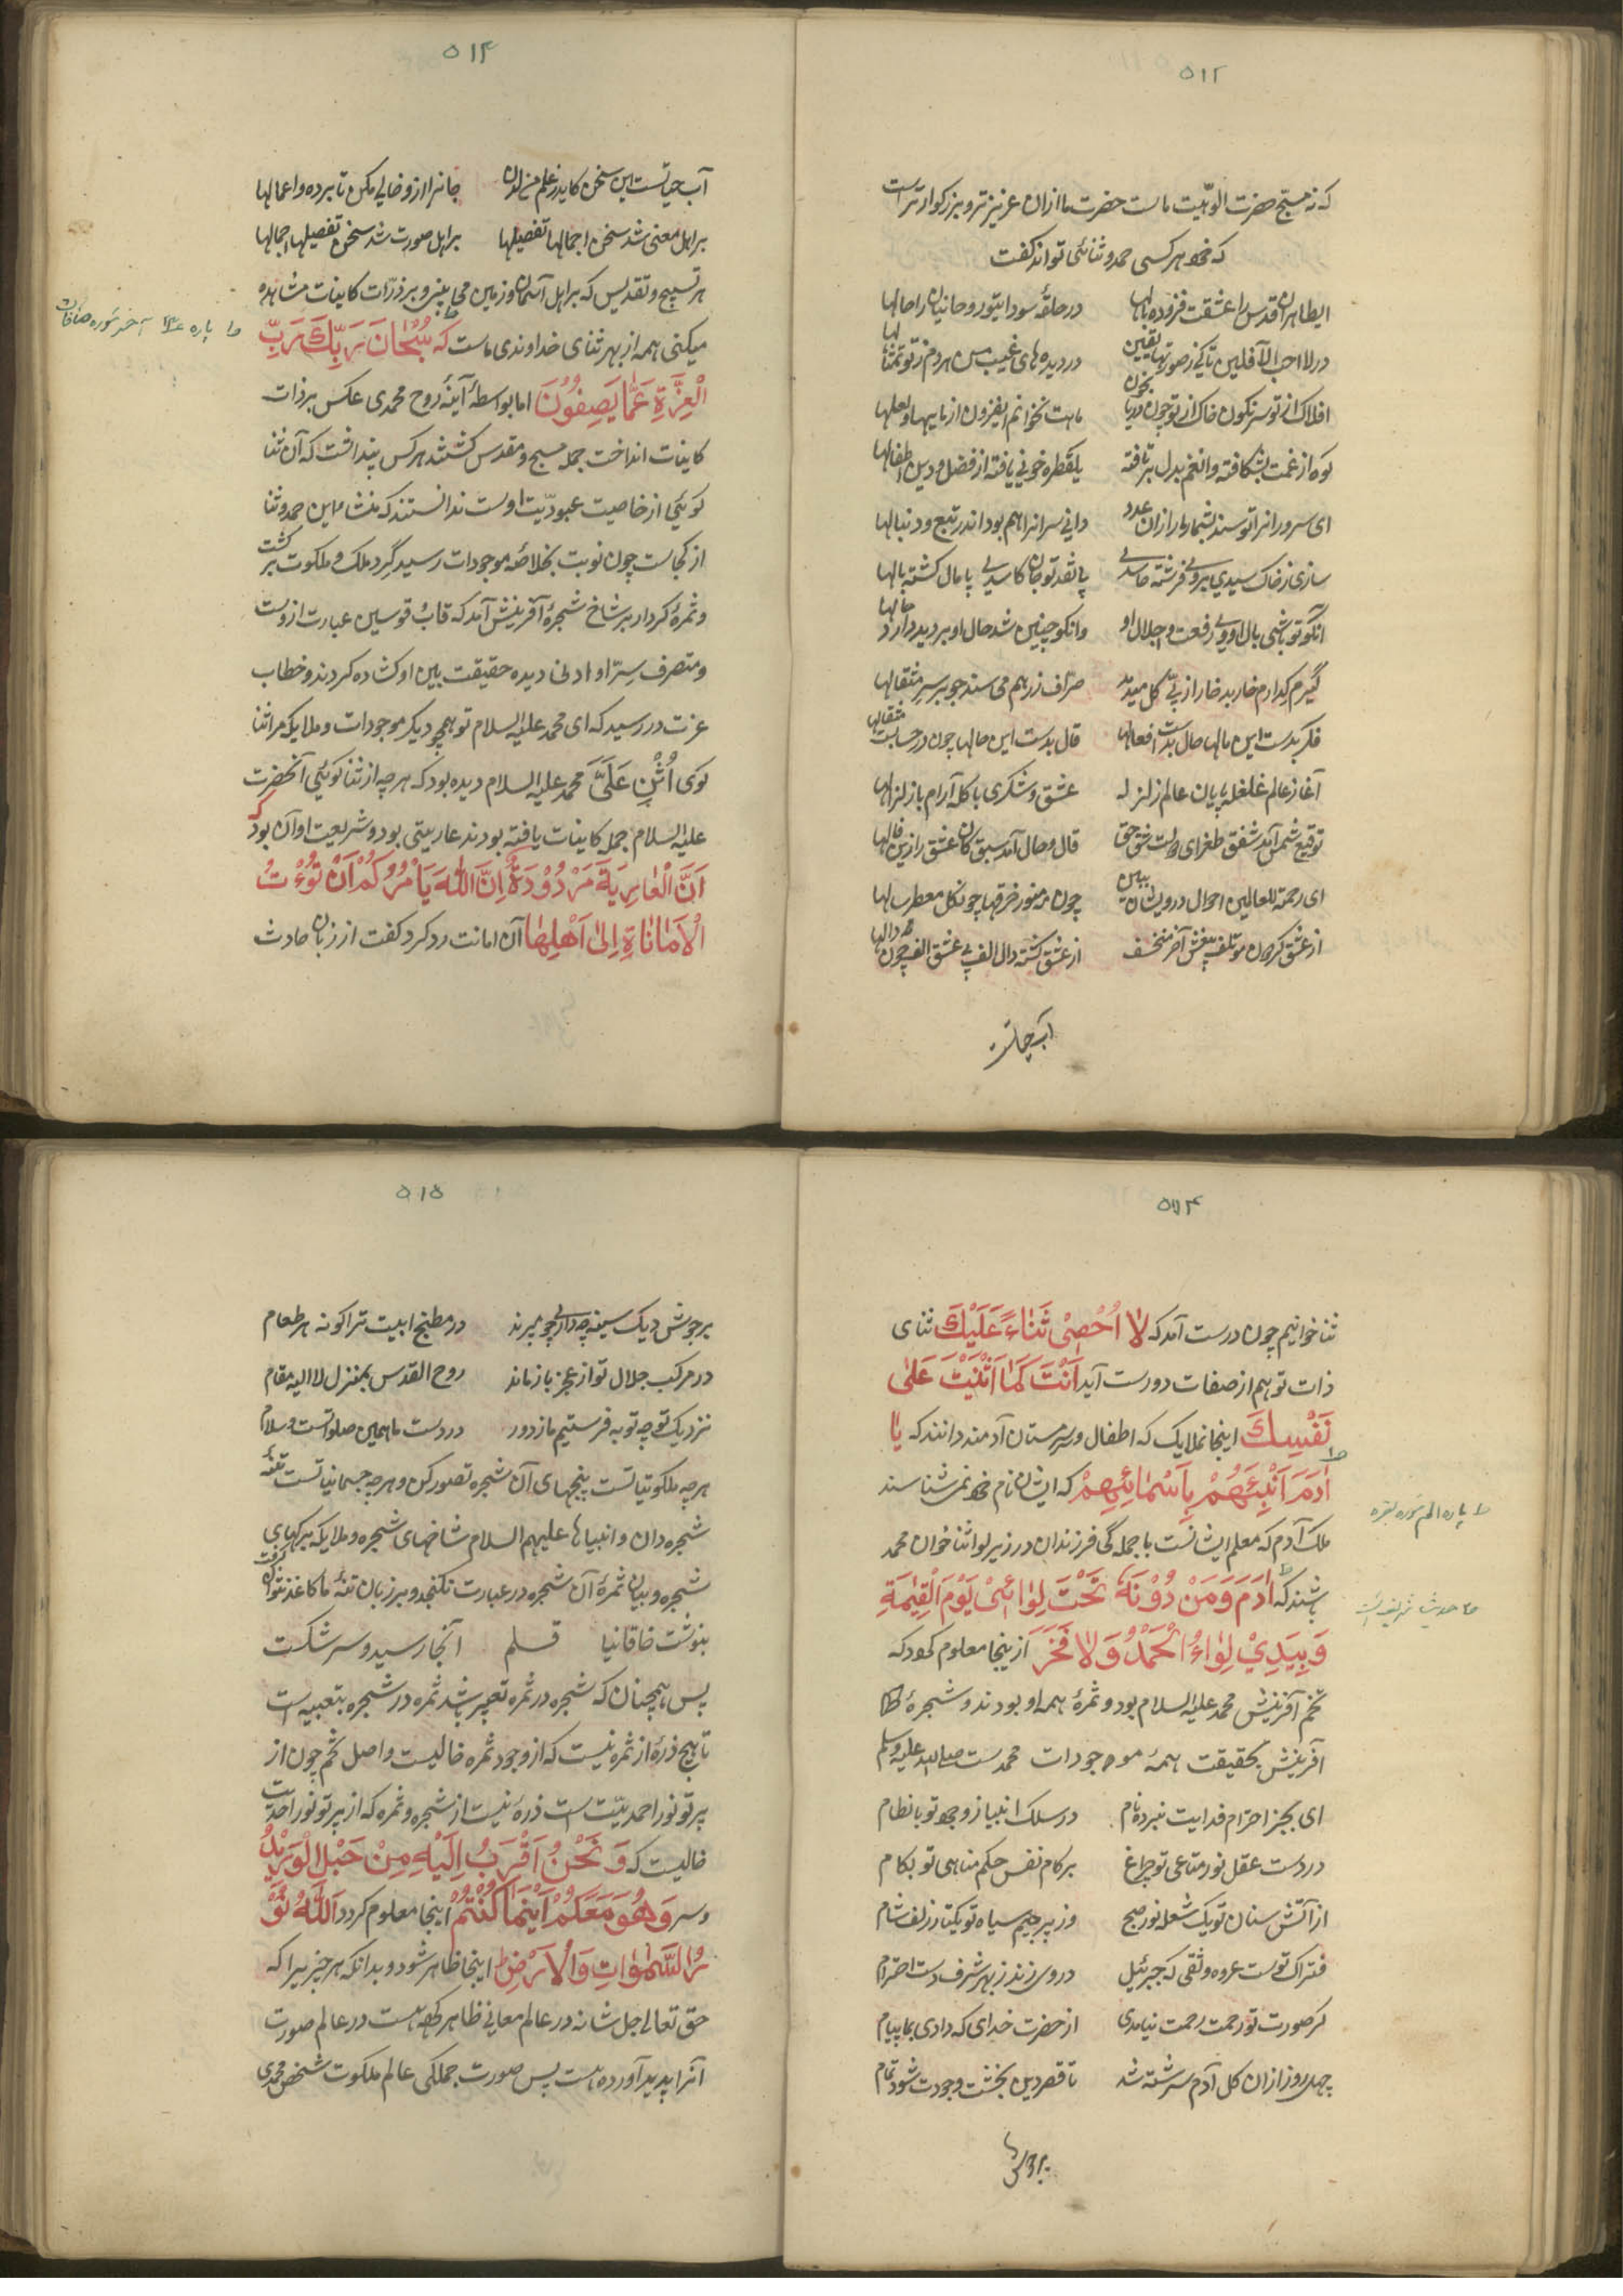 ۵۱۲
که نه مسبح حضرت الوهیت ماست حضرت ما ازان عزیزتر و بزرکوارترست
که هر کسی حمد و ثنائی تواند کفت
ای طاهران قدس را عشقت فزوده بالها در حلقه سودای تو روحانیان را حالها
در لا احب الآفلین پاکی ز صورتها یقین در دیده های غیب بین هر دم ز تو تمثالها
افلاک از تو سرنکون خاک از تو چون دریای خون ماهت نخوانم ای فزون از ماهها و سالها
کوه از غمت بشکافته وان غم بدل برتافته یک قطره خونی یافته از فضلت این افضالها
ای سروران را تو سند بشمار ما را زان عدد دانی سران را هم بود اندر تبع دنبالها
سازی ز خاک سیدی بر وی فرشته حاسدی با نقد تو جان کاسدی پامال کشته بالها
آنکو تو باشی بال او ای رفعت و اجلال او وانکو چنین شد حال او بر روی دارد خالها
کیرم که دارم خار بد خار از پی کل میدمد صراف زر هم می نهد جو بر سر مثقالها
فکر بدست این مالها حال بدست افعالها قال بدست این حالها چون در حسابست مثقالها
آغاز عالم غلغله پایان عالم زلزله عشق و شکری با کله آرام با زلزالها
توقیع شمس آمد شفق طغرای دولت عشق حق قال وصال آمد سبق کان عشق زد این فالها
ای رحمة للعالمین احوال درویشان ببین چون مه منور خرقها چون کل معطر شالها
از عشق کردون مؤتلف بی عشق اختر منخسف از عشق کشته دال الف بی عشق الف چون دالها
آب حیاتست
۵۱۳
آب حیاتست این سخن کاید ز علم من لدن جانرا ازو خالی مکن تا بر دهد اعمالها
بر اهل معنی شد سخن اجمالها تفصیلها بر اهل صورت شد سخن تفصیلها اجمالها
هر تسبیح و تقدیس که بر اهل آسمان و زمین می بینی و بر ذرات کاینات مشاهده
میکنی همه از بهر ثنای خداوندی ماست که سُبْحَانَ رَبِّكَ رَبِّ
الْعِزَّةِ عَمَّا يَصِفُونَ اما بواسطهٔ آینهٔ روح محمدی عکس بر ذات
کاینات انداخت جمله مسبح و مقدس کشتند هر کس پنداشت که آن ثنا
کوئی از خاصیت عبودیت اوست ندانستند که منشاء این حمد و ثنا
از کجاست چون نوبت بخلاصهٔ موجودات رسید کرد ملک و ملکوت بر کشت
و ثمره کردار بر شاخ شجرهٔ آفرینش آمد که قاب قوسین عبارت ازوست
و متصرف سر او ادنی دیده حقیقت بین او کشاده کردند و خطاب
عزت در رسید که ای محمد علیه السلام تو همچو دیکر موجودات و ملایکه مرا ثنا
کوی اُثْنِ عَلَيَّ محمد علیه السلام دیده بود که هر چه از ثنا کوئی آنحضرت
علیه السلام جمله کاینات یافته بودند عاریتی بود و شریعت او آن بود که
اَنَّ الْعَارِيَةَ مَرْدُوْدَةٌ اِنَّ اللهَ يَاْمُرُكُمْ اَنْ تُؤَدُّ
الْاَمَانَاتِ اِلىٰ اَهْلِهَا آن امانت رد کرد کفت از زبان حادث
ط پاره ۲۳ آخر سوره صافات
۵۱۴
ثنا خوانیم چون درست آمد که لَا اُحْصِىْ ثَنَاءً عَلَيْكَ ثنای
ذات تو هم از صفات تو درست آید اَنْتَ كَمَا اَثْنَيْتَ عَلىٰ
نَفْسِكَ اینجا ملایک که اطفال دبیرستان آدمند دانند که يَا
اٰدَمَ اَنْبِئْهُمْ بِاَسْمَائِهِمْ که ایشان نام خود نمی شناسند
ملک آدم که معلم ایشانست با جملگی فرزندان در زیر لوا ثنا خوان محمد
باشند که اٰدَمَ وَمَنْ دُوْنَهُ تَحْتَ لِوَائِىْ يَوْمَ الْقِيٰمَةِ
وَبِيَدِيْ لِوَاءُ الْحَمْدِ وَلَا فَخَرَ ازینجا معلوم کردد که
تخم آفرینش محمد علیه السلام بود و ثمرهٔ همه او بودند و شجرهٔ
آفرینش بحقیقت همه موجودات محمدست صلی الله علیه وسلم
ای بجز احترام خدایت نبرده نام در سلک انبیا ز وجود تو بانظام
در دست عقل نور متاعی تو چراغ بر کام نفس حکم مناهی تو بکام
از آتش سنان تو یک شعله نور صبح وز پرچم سیاه تو یکتا ز زلف شام
فتراک تست عروه وثقی که جبرئیل در وی زند ز بهر شرف دست احترام
کر صورت تو رحمت رحمت نیامدی از حضرت خدای که دادی بما پیام
چهل روز ازان کل آدم سرشته شد تا قصر دین بخشت وجودت شود تمام
ط پاره الم سوره بقره
ط حدیث شریف است
بر جوش
۵۱۵
بر جوش دیک سینه چه داری چو میرند در مطبخ ابیت ترا کونه هر طعام
در مرکب جلال تو از عجز باز ماند روح القدس بمنزل لا الیه مقام
نزدیک تو چه تو به فرستیم ما ز دور در دست ما همین صلواتست و سلام
هر چه ملکوتیاتست بیخهای آن شجره تصور کن و هر چه جسمانیاتست تنهٔ
شجره دان و انبیاها علیهم السلام شاخهای شجره و ملایکه برکهای
شجره و بیان ثمرهٔ آن شجره در عبارت نکنجد و بر زبان تنهٔ ما کاغذ نتوان کرفت
بنوشت خاقانیا قلم آنجا رسید و سر شکست
پس همچنان که شجره در ثمره تعبیه باشد ثمره در شجره بتعبیه است
تا هیچ ذرهٔ از ثمره نیست که از وجود ثمره خالیست و اصل تخم چون از
پرتو نور احمدیت است ذرهٔ نیست از شجره و ثمره که از پرتو نور احدیت
خالیست که وَنَحْنُ اَقْرَبُ اِلَيْهِ مِنْ حَبْلِ الْوَرِيْدُ
و سر وَهُوَ مَعَكُمْ اَيْنَمَا كُنْتُمْ اینجا معلوم کردد اَللهُ نُوْ
رُ السَّمٰوَاتِ وَالْاَرْضِ اینجا ظاهر شود و بدانکه هر چیزیرا که
حق تعالی جل شانه در عالم معانی ظاهر کرده است در عالم صورت
آنرا پدید آورده است پس صورت جملگی عالم ملکوت شخص محمدی